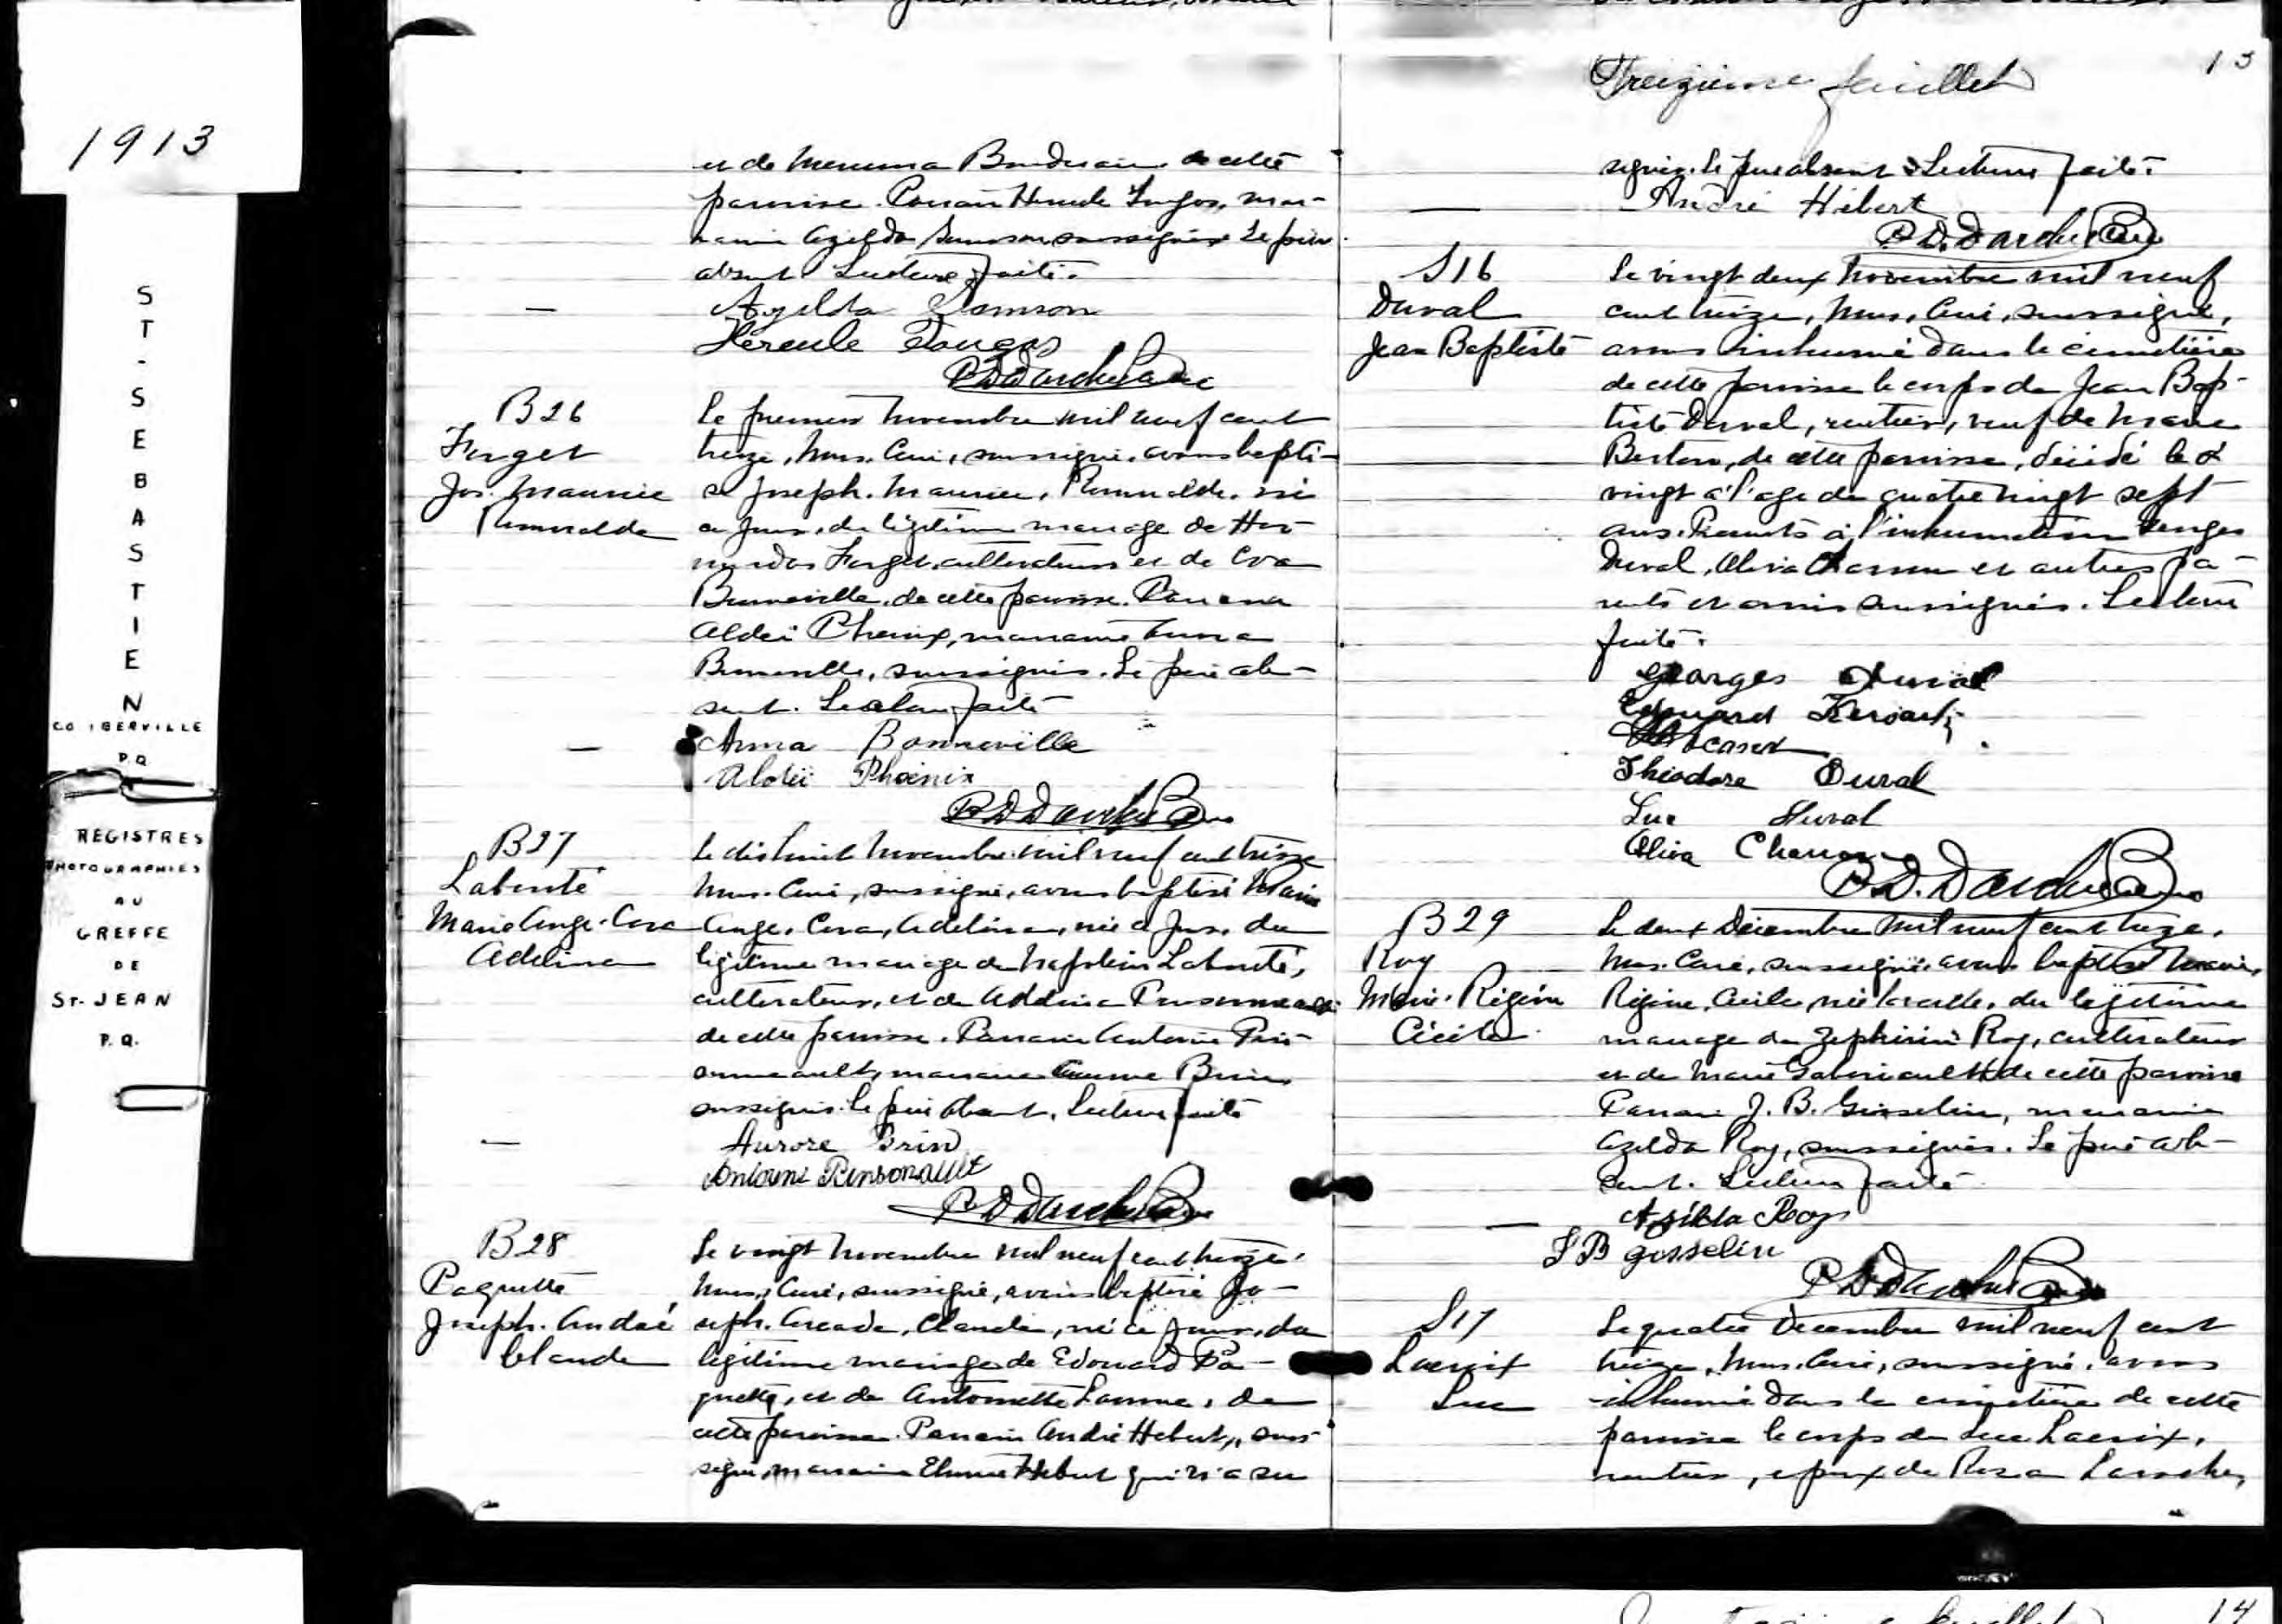 1913
ST-SEBASTIEN
CO IBERVILLE
P.Q.
REGISTRES
PHOTOGRAPHIES
AU
GREFFE
DE
ST-JEAN
P.Q.
et de de cette
paroisse. Parrain Hercule mar-
raine Azilda Samson soussignés. Le père
absent. Lecture faite.
Azilda Samson
Hercule
P D Darche Ptre
B26
Forget
Jos. Maurice
Romualde
Le premier novembre mil neuf cent
treize, Nous, Curé, soussigné, avons bapti-
sé Joseph, Maurice, Romualde, né
ce jour, du légitime mariage de Hor-
misdas Forget, cultivateur et de Eva
Bonneville, de cette paroisse. Parrain
Aldéi Phenix, marraine Anna
Bonneville, soussignés. Le père ab-
sent. Lecture faite
Anna Bonneville
Aldéi Phoenix
P D Darche Ptre
B27
Laberté
Marie Ange. Cora
Adelina
Le dix huit novembre mil neuf cent treize
Nous, Curé, soussigné, avons baptisé Marie
Ange, Cora, Adelina, née ce jour, du
légitime mariage de Napoléon Laberté,
cultivateur, et de Adelina Pinsonneault
de cette paroisse. Parrain Antoine Pin-
sonneault, marraine Aurore Brin,
soussignés. Le père absent. Lecture faite
Aurore Brin
Antoine Pinsonault
P D Darche Ptre
B28
Paquette
Joseph. André
Claude
Le vingt novembre mil neuf cent treize,
Nous, Curé, soussigné, avons baptisé Jo-
seph, Claude, né ce jour, du
légitime mariage de Edouard Pa-
quette, et de Antoinette de
cette paroisse. Parrain André Hebert, sous-
signé, marraine Hebert qui n'a su
Treizième feuillet
13
signer. Le père absent. Lecture faite.
André Hébert
P. D. Darche Ptre
S16
Duval
Jean Baptiste
Le vingt deux novembre mil neuf
cent treize, Nous, Curé, soussigné,
avons inhumé dans le cimetière
de cette paroisse le corps de Jean Bap-
tiste Duval, rentier, veuf de Marie
de cette paroisse, décédé le
vingt à l'age de quatre vingt sept
ans. Présents à l'inhumation Georges
Duval, Oliva Charron et autres pa-
rents et amis soussignés. Lecture
faite.
Georges Duval
Edouard
Théodore Duval
Luc Duval
Oliva Charron
P. D. Darche Ptre
B29
Roy
Marie. Régina
Cécile
Le deux Décembre mil neuf cent treize,
Nous, Curé, soussigné, avons baptisé Marie,
Régina, Cécile, née la veille, du légitime
mariage de Zephirin Roy, cultivateur
et de Marie Gaboriault de cette paroisse
Parrain J. B. Gosselin, marraine
Azilda Roy, soussignés. Le père ab-
sent. Lecture faite
Azilda Roy
J B Gosselin
P D Darche Ptre
S17
Lacroix
Luc
Le quatre Décembre mil neuf cent
treize, Nous, Curé, soussigné, avons
inhumé dans le cimetière de cette
paroisse le corps de Luc Lacroix,
rentier, époux de Rosa Laroche,
feuillet
14